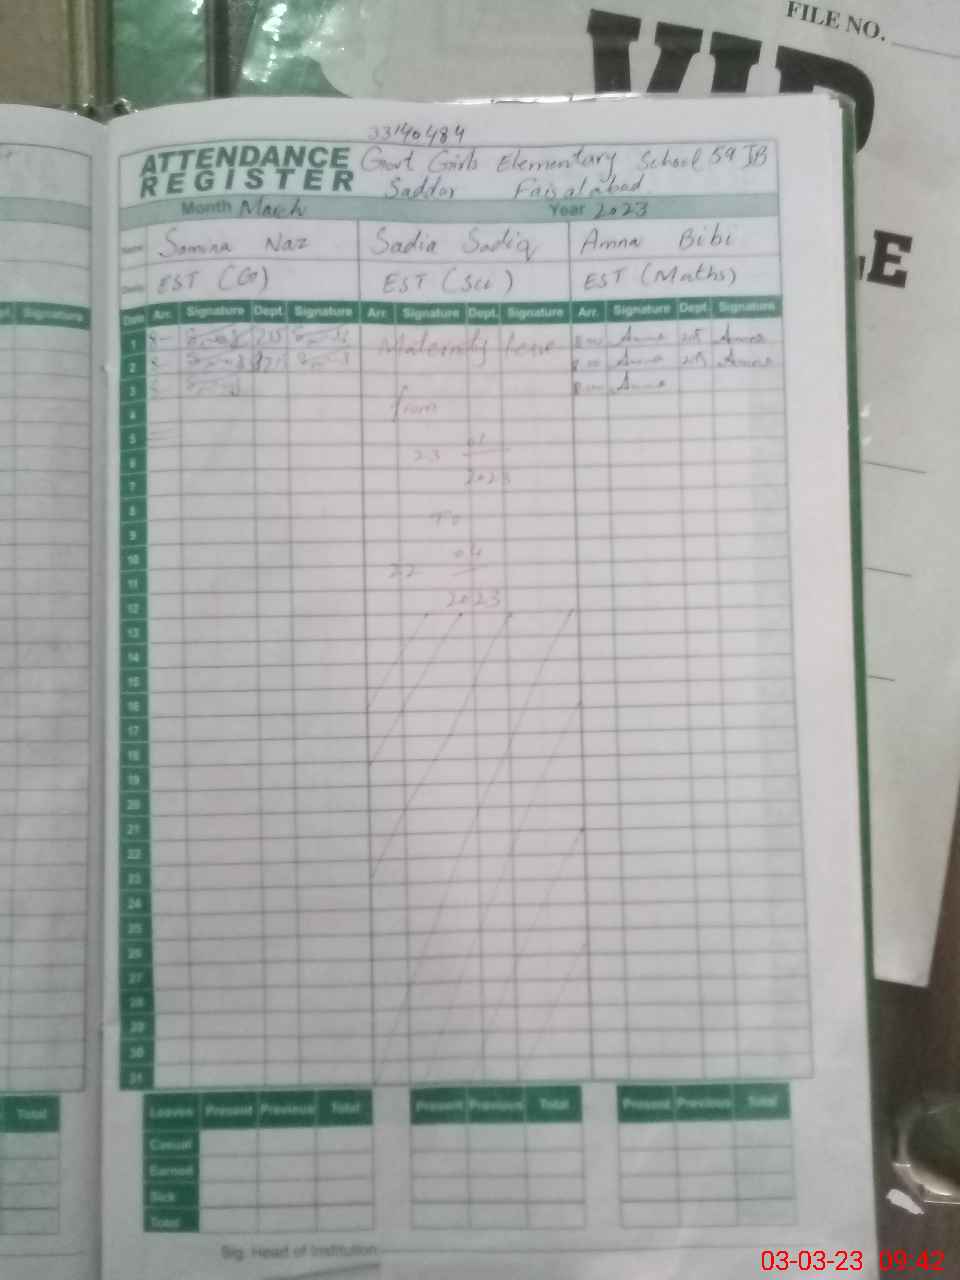 FILE NO.
VIP
33140484
ATTENDANCE
REGISTER
Govt Girls Elementary School 59 JB
Saddar Faisalabad
Month March Year 2023
Name Samina Naz Sadia Sadiq Amna Bibi
EST (G) EST (Sci) EST (Maths)
Signature
Date Arr. Signature Dept. Signature Arr. Signature Dept. Signature Arr. Signature Dept. Signature
1 Maternity leave 8:00 Amna Amna
2 8:00 Amna Amna
3 8:00 Amna
4 from
5
6 23 01
7 2023
8
9 To
10
11 22 04
12 2023
13
14
15
16
17
18
19
20
21
22
23
24
25
26
27
28
29
30
31
Total
Leaves Present Previous Total Present Previous Total Present Previous Total
Casual
Earned
Sick
Total
Sig. Head of Institution
03-03-23 09:42